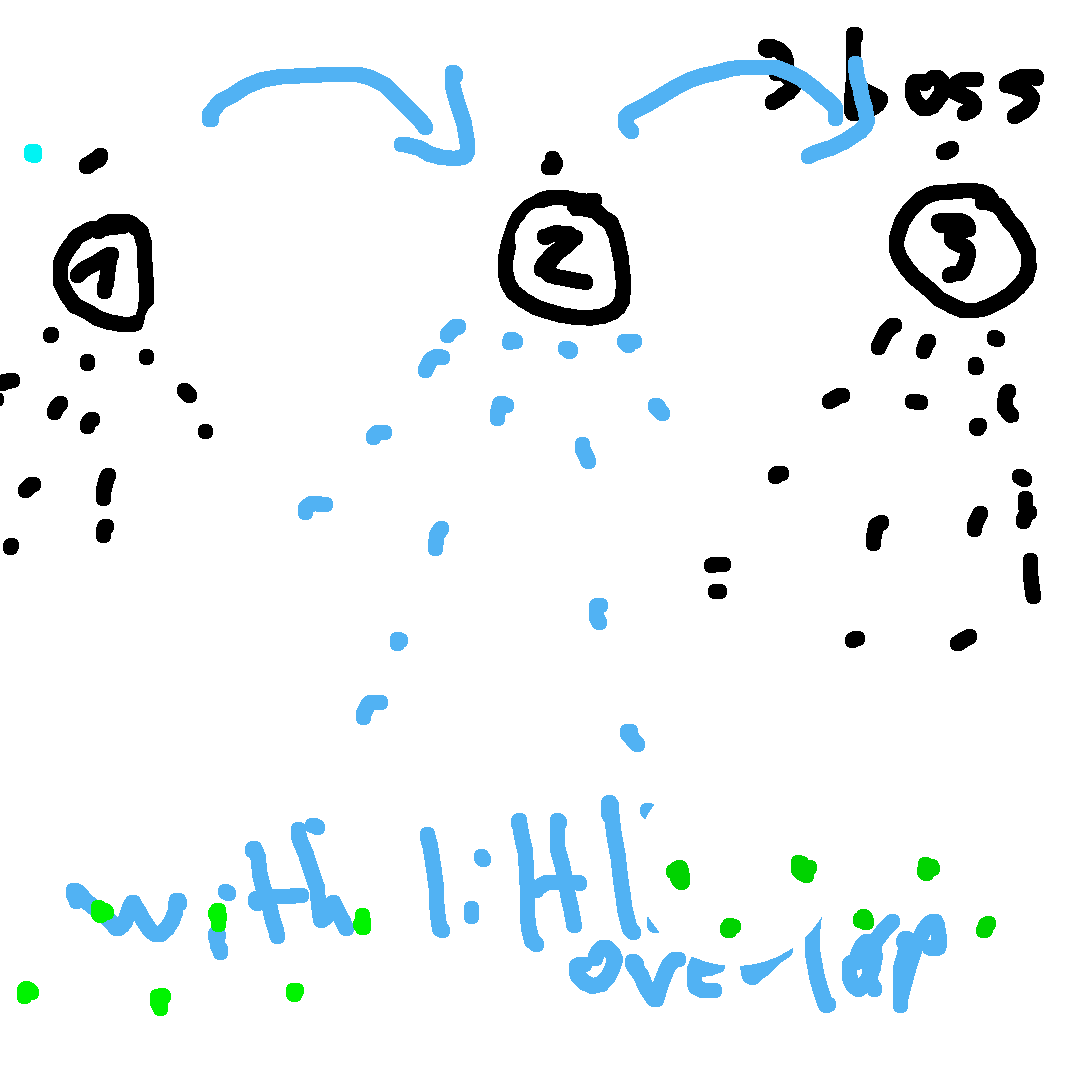 3 boss
1 2 3
with littl
overlap